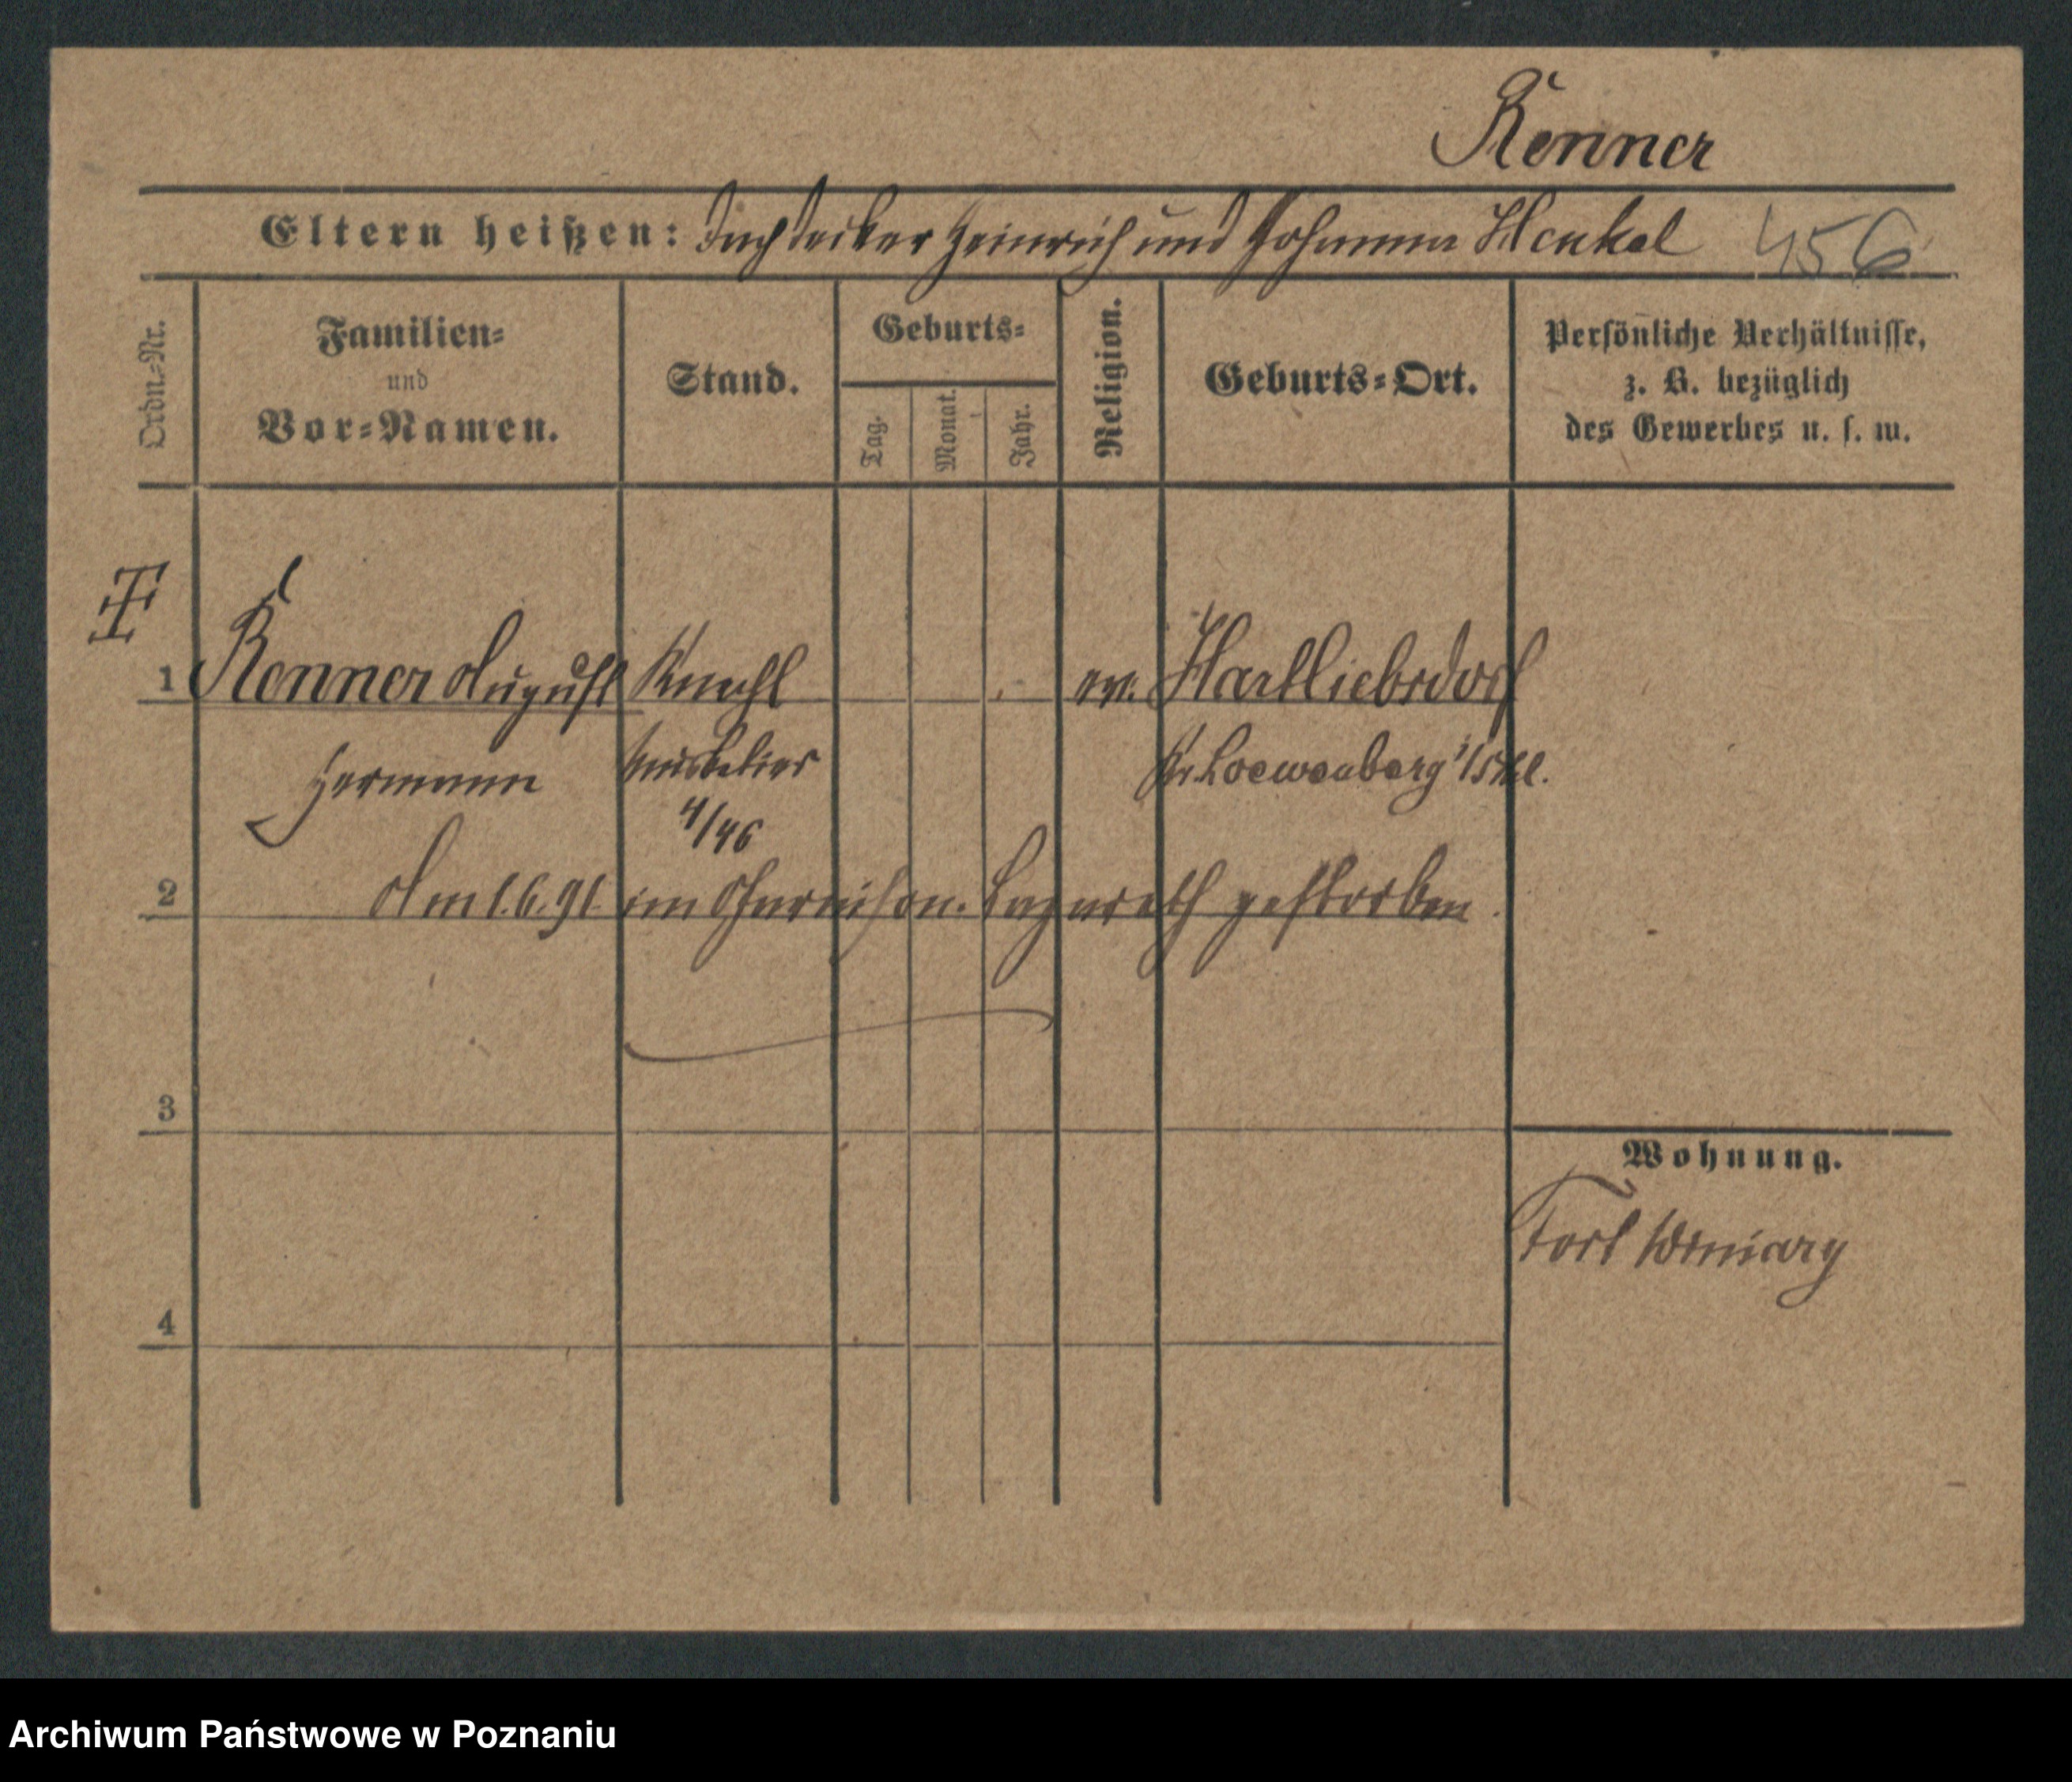 Renner
Eltern heißen: Dachdecker Heinrich und Johanna Henkel 456
Ordn.-Nr.
Familien-
und
Vor-Namen.
Stand.
Geburts-
Tag.
Monat.
Jahr.
Religion.
Geburts-Ort.
Persönliche Verhältnisse,
z. B. bezüglich
des Gewerbes u. s. w.
1 Renner August Knecht ev. Hartliebsdorf
Hermann Musketier Kr. Loewenberg i/Schl.
4/46
2 Am 1.6.91. im Garnison-Lazareth gestorben.
3
Wohnung.
Fort Winiary
4
Archiwum Państwowe w Poznaniu